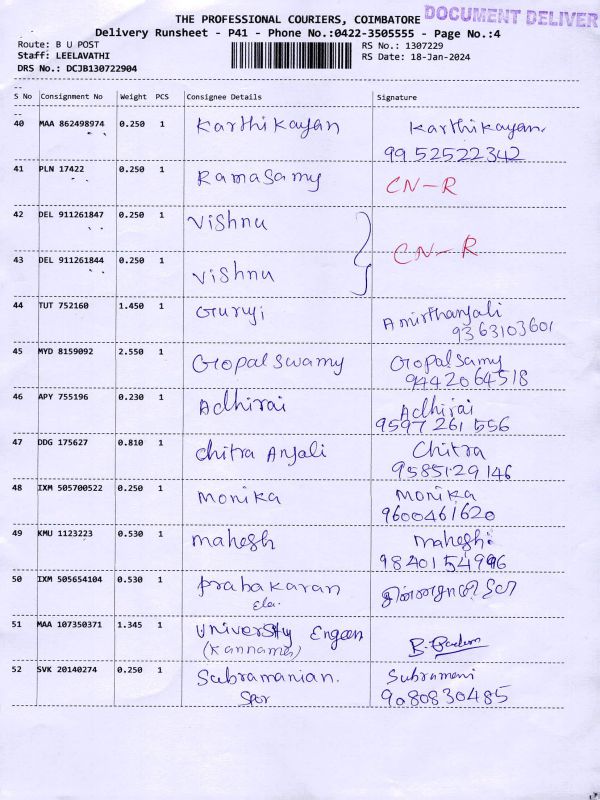 THE PROFESSIONAL COURIERS, COIMBATORE
DOCUMENT DELIVER
Delivery Runsheet - P41 - Phone No.:0422-3505555 - Page No.:4
Route: B U POST
RS No.: 1307229
Staff: LEELAVATHI
RS Date: 18-Jan-2024
DRS No.: DCJB130722904
S No Consignment No Weight PCS Consignee Details Signature
40 MAA 862498974 0.250 1 Karthikayan Karthikayan.
99 52522342
41 PLN 17422 0.250 1 Ramasamy CN-R
42 DEL 911261847 0.250 1 Vishnu
CN-R
43 DEL 911261844 0.250 1 Vishnu
44 TUT 752160 1.450 1 Guruji Amirthanjali
9363103601
45 MYD 8159092 2.550 1 Gopal Swamy Gopal Samy
9442064518
46 APY 755196 0.230 1 Adhirai Adhirai
9597 261 556
47 DDG 175627 0.810 1 Chitra Anjali Chitra
9585129146
48 IXM 505700522 0.250 1 Monika Monika
9600461620
49 KMU 1123223 0.530 1 Mahesh Mahesh
9840154996
50 IXM 505654104 0.530 1 Prabakaran
Ele.
51 MAA 107350371 1.345 1 University Engeen
(Kannamma)
52 SVK 20140274 0.250 1 Subramanian. Subramani
Spor 9080830485